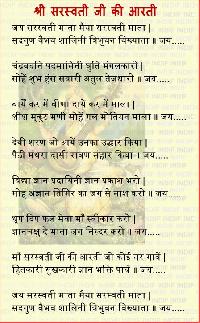 श्री सरस्वती जी की आरती
जय सरस्वती माता मैया सरस्वती माता |
सदगुण वैभव शालिनी त्रिभुवन विख्याता ॥ जय.....
चंद्रवदनि पदमासिनी द्युति मंगलकारी |
सोहें शुभ हंस सवारी अतुल तेजधारी ॥ जय.....
बायें कर में वीणा दायें कर में माला |
शीश मुकुट मणी सोहें गल मोतियन माला ॥ जय.....
देवी शरण जो आयें उनका उद्धार किया |
पैठी मंथरा दासी रावण संहार किया ॥ जय.....
विद्या ज्ञान प्रदायिनी ज्ञान प्रकाश भरो |
मोह अज्ञान तिमिर का जग से नाश करो ॥ जय.....
धूप दिप फल मेवा माँ स्वीकार करो |
ज्ञानचक्षु दे माता जग निस्तार करो ॥ जय.....
माँ सरस्वती जी की आरती जो कोई नर गावें |
हितकारी सुखकारी ज्ञान भक्ति पावें ॥ जय.....
जय सरस्वती माता मैया सरस्वती माता |
सदगुण वैभव शालिनी त्रिभुवन विख्याता ॥ जय.....